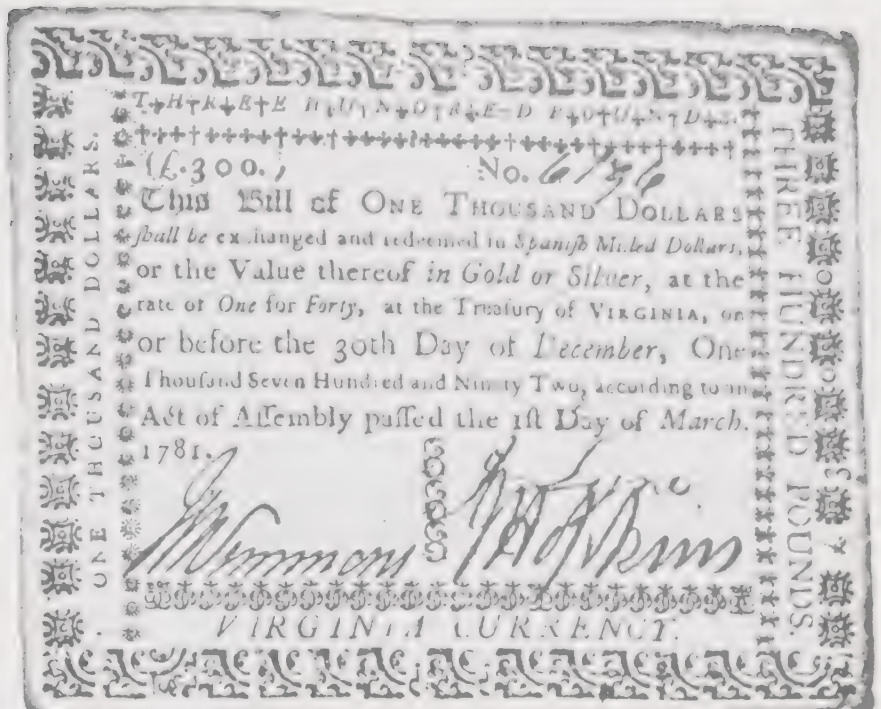 THREE HUNDRED POUNDS.
(£.300.) No. 6756
This Bill of ONE THOUSAND DOLLARS
ſhall be exchanged and redeemed in Spaniſh Milled Dollars,
or the Value thereof in Gold or Silver, at the
rate of One for Forty, at the Treaſury of VIRGINIA, on
or before the 30th Day of December, One
Thouſand Seven Hundred and Ninety Two, according to an
Act of Aſſembly paſſed the 1ſt Day of March,
1781.
Simmons
J Hopkins
VIRGINIA CURRENCY.
ONE THOUSAND DOLLARS.
THREE HUNDRED POUNDS.